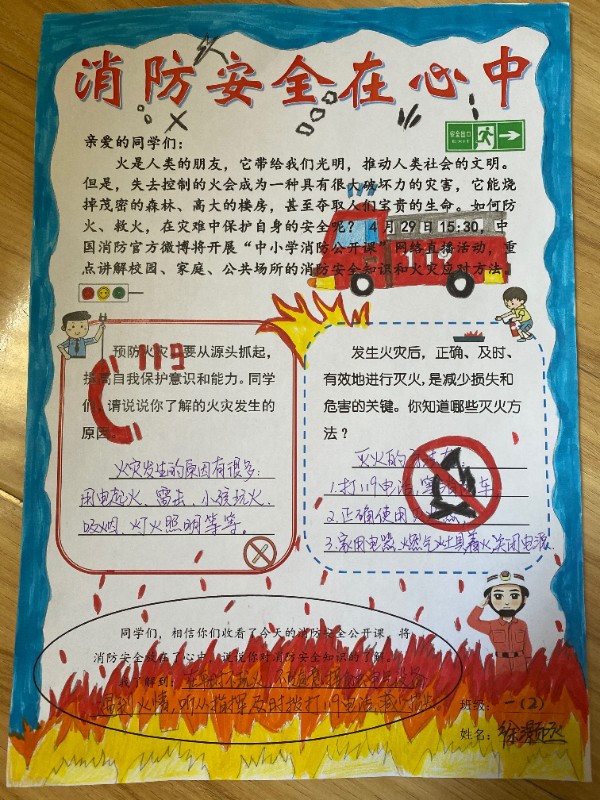 消防安全在心中
安全出口
亲爱的同学们：
火是人类的朋友，它带给我们光明，推动人类社会的文明。
但是，失去控制的火会成为一种具有很大破坏力的灾害，它能烧
掉茂密的森林、高大的楼房，甚至夺取人们宝贵的生命。如何防
火、救火，在灾难中保护自身的安全呢？4月29日15:30，中
国消防官方微博将开展“中小学消防公开课”网络直播活动，重
点讲解校园、家庭、公共场所的消防安全知识和火灾应对方法。
119
119
预防火灾，要从源头抓起，
提高自我保护意识和能力。同学
们，请说说你了解的火灾发生的
原因。
火灾发生的原因有很多：
用电起火、雷击、小孩玩火、
吸烟、灯火照明等等。
发生火灾后，正确、及时、
有效地进行灭火，是减少损失和
危害的关键。你知道哪些灭火方
法？
灭火的
1.打119电话，
2.正确使用
3.家用电器、燃气灶具着火关闭电源。
同学们，相信你们收看了今天的消防安全公开课，将
消防安全放在了心中。说说你对消防安全知识的了解。
我了解到：
遇到火情，听从指挥及时拨打119电话
班级：一(2)
姓名：徐